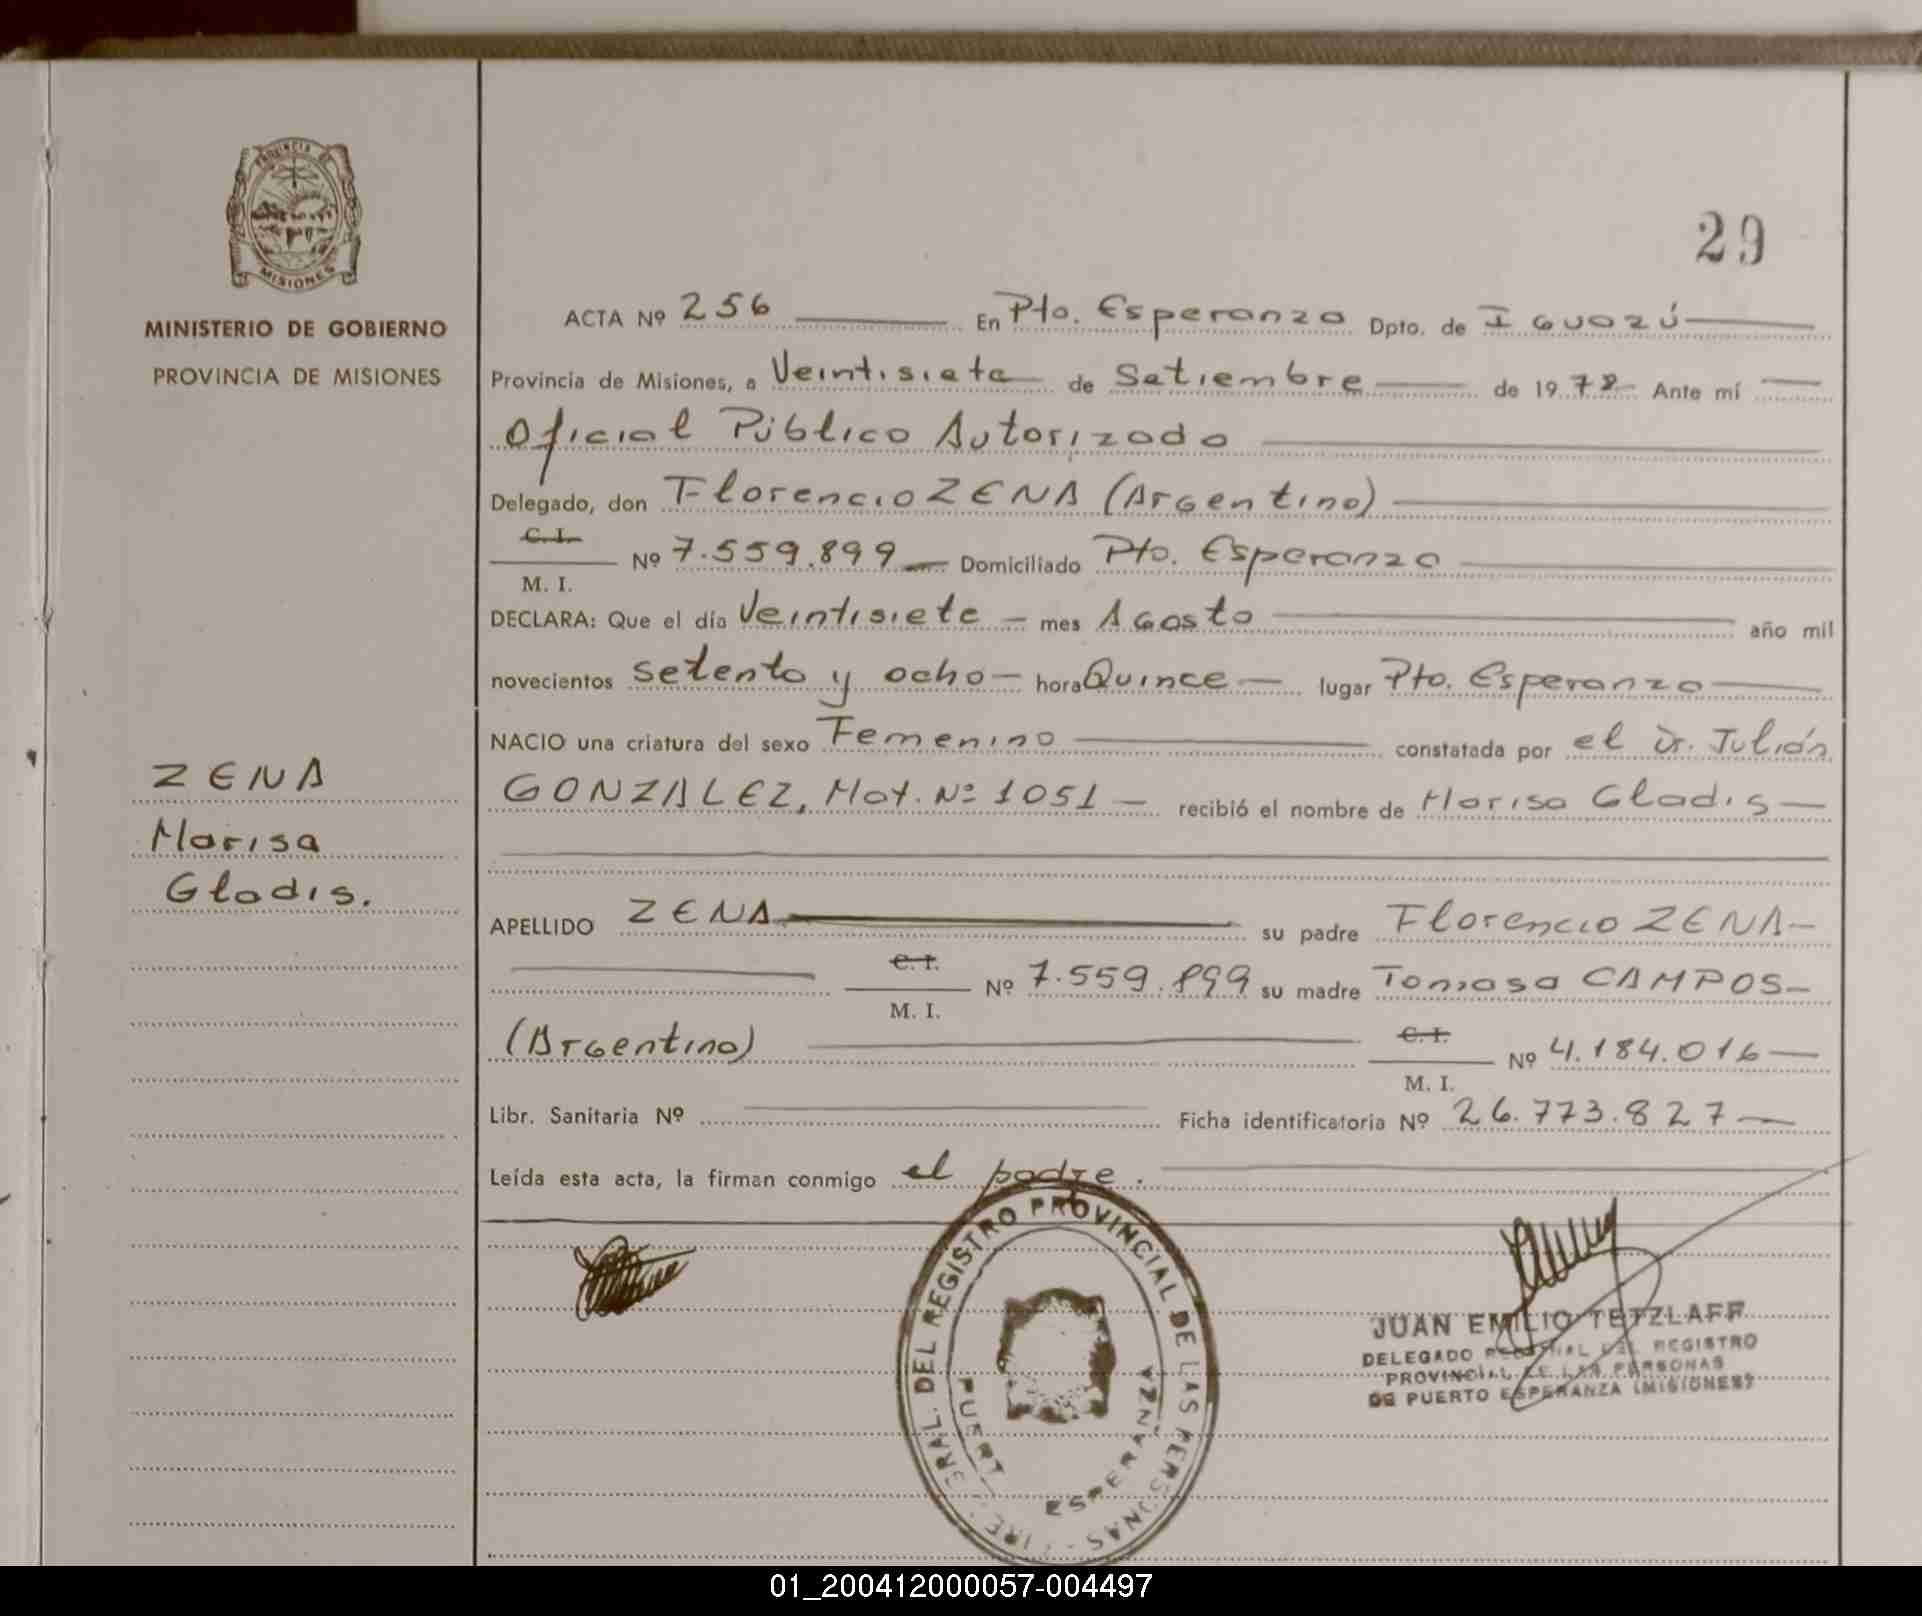 PROVINCIA DE
MISIONES
MINISTERIO DE GOBIERNO
PROVINCIA DE MISIONES
ZENA
Marisa
Gladis.
29
ACTA Nº 256 En Pto. Esperanza Dpto. de Iguazú
Provincia de Misiones, a Veintisiete de Setiembre de 1978 Ante mí
Oficial Público Autorizado
Delegado, don Florencio ZENA (Argentino)
C. I.
Nº 7.559.899 Domiciliado Pto. Esperanza
M. I.
DECLARA: Que el día Veintisiete mes Agosto año mil
novecientos setenta y ocho hora Quince lugar Pto. Esperanza
NACIO una criatura del sexo Femenino constatada por el Dr. Julián
GONZALEZ, Mat. Nº 1051 recibió el nombre de Marisa Gladis
APELLIDO ZENA su padre Florencio ZENA
C. I.
Nº 7.559.899 su madre Tomasa CAMPOS
M. I.
(Argentina)
C. I.
Nº 4.184.016
M. I.
Libr. Sanitaria Nº Ficha identificatoria Nº 26.773.827
Leída esta acta, la firman conmigo el padre.
DEL REGISTRO PROVINCIAL DE LAS PERSONAS
ESPERANZA
JUAN EMILIO TETZLAFF
DELEGADO REGIONAL DEL REGISTRO
PROVINCIAL DE LAS PERSONAS
DE PUERTO ESPERANZA (MISIONES)
01_200412000057-004497